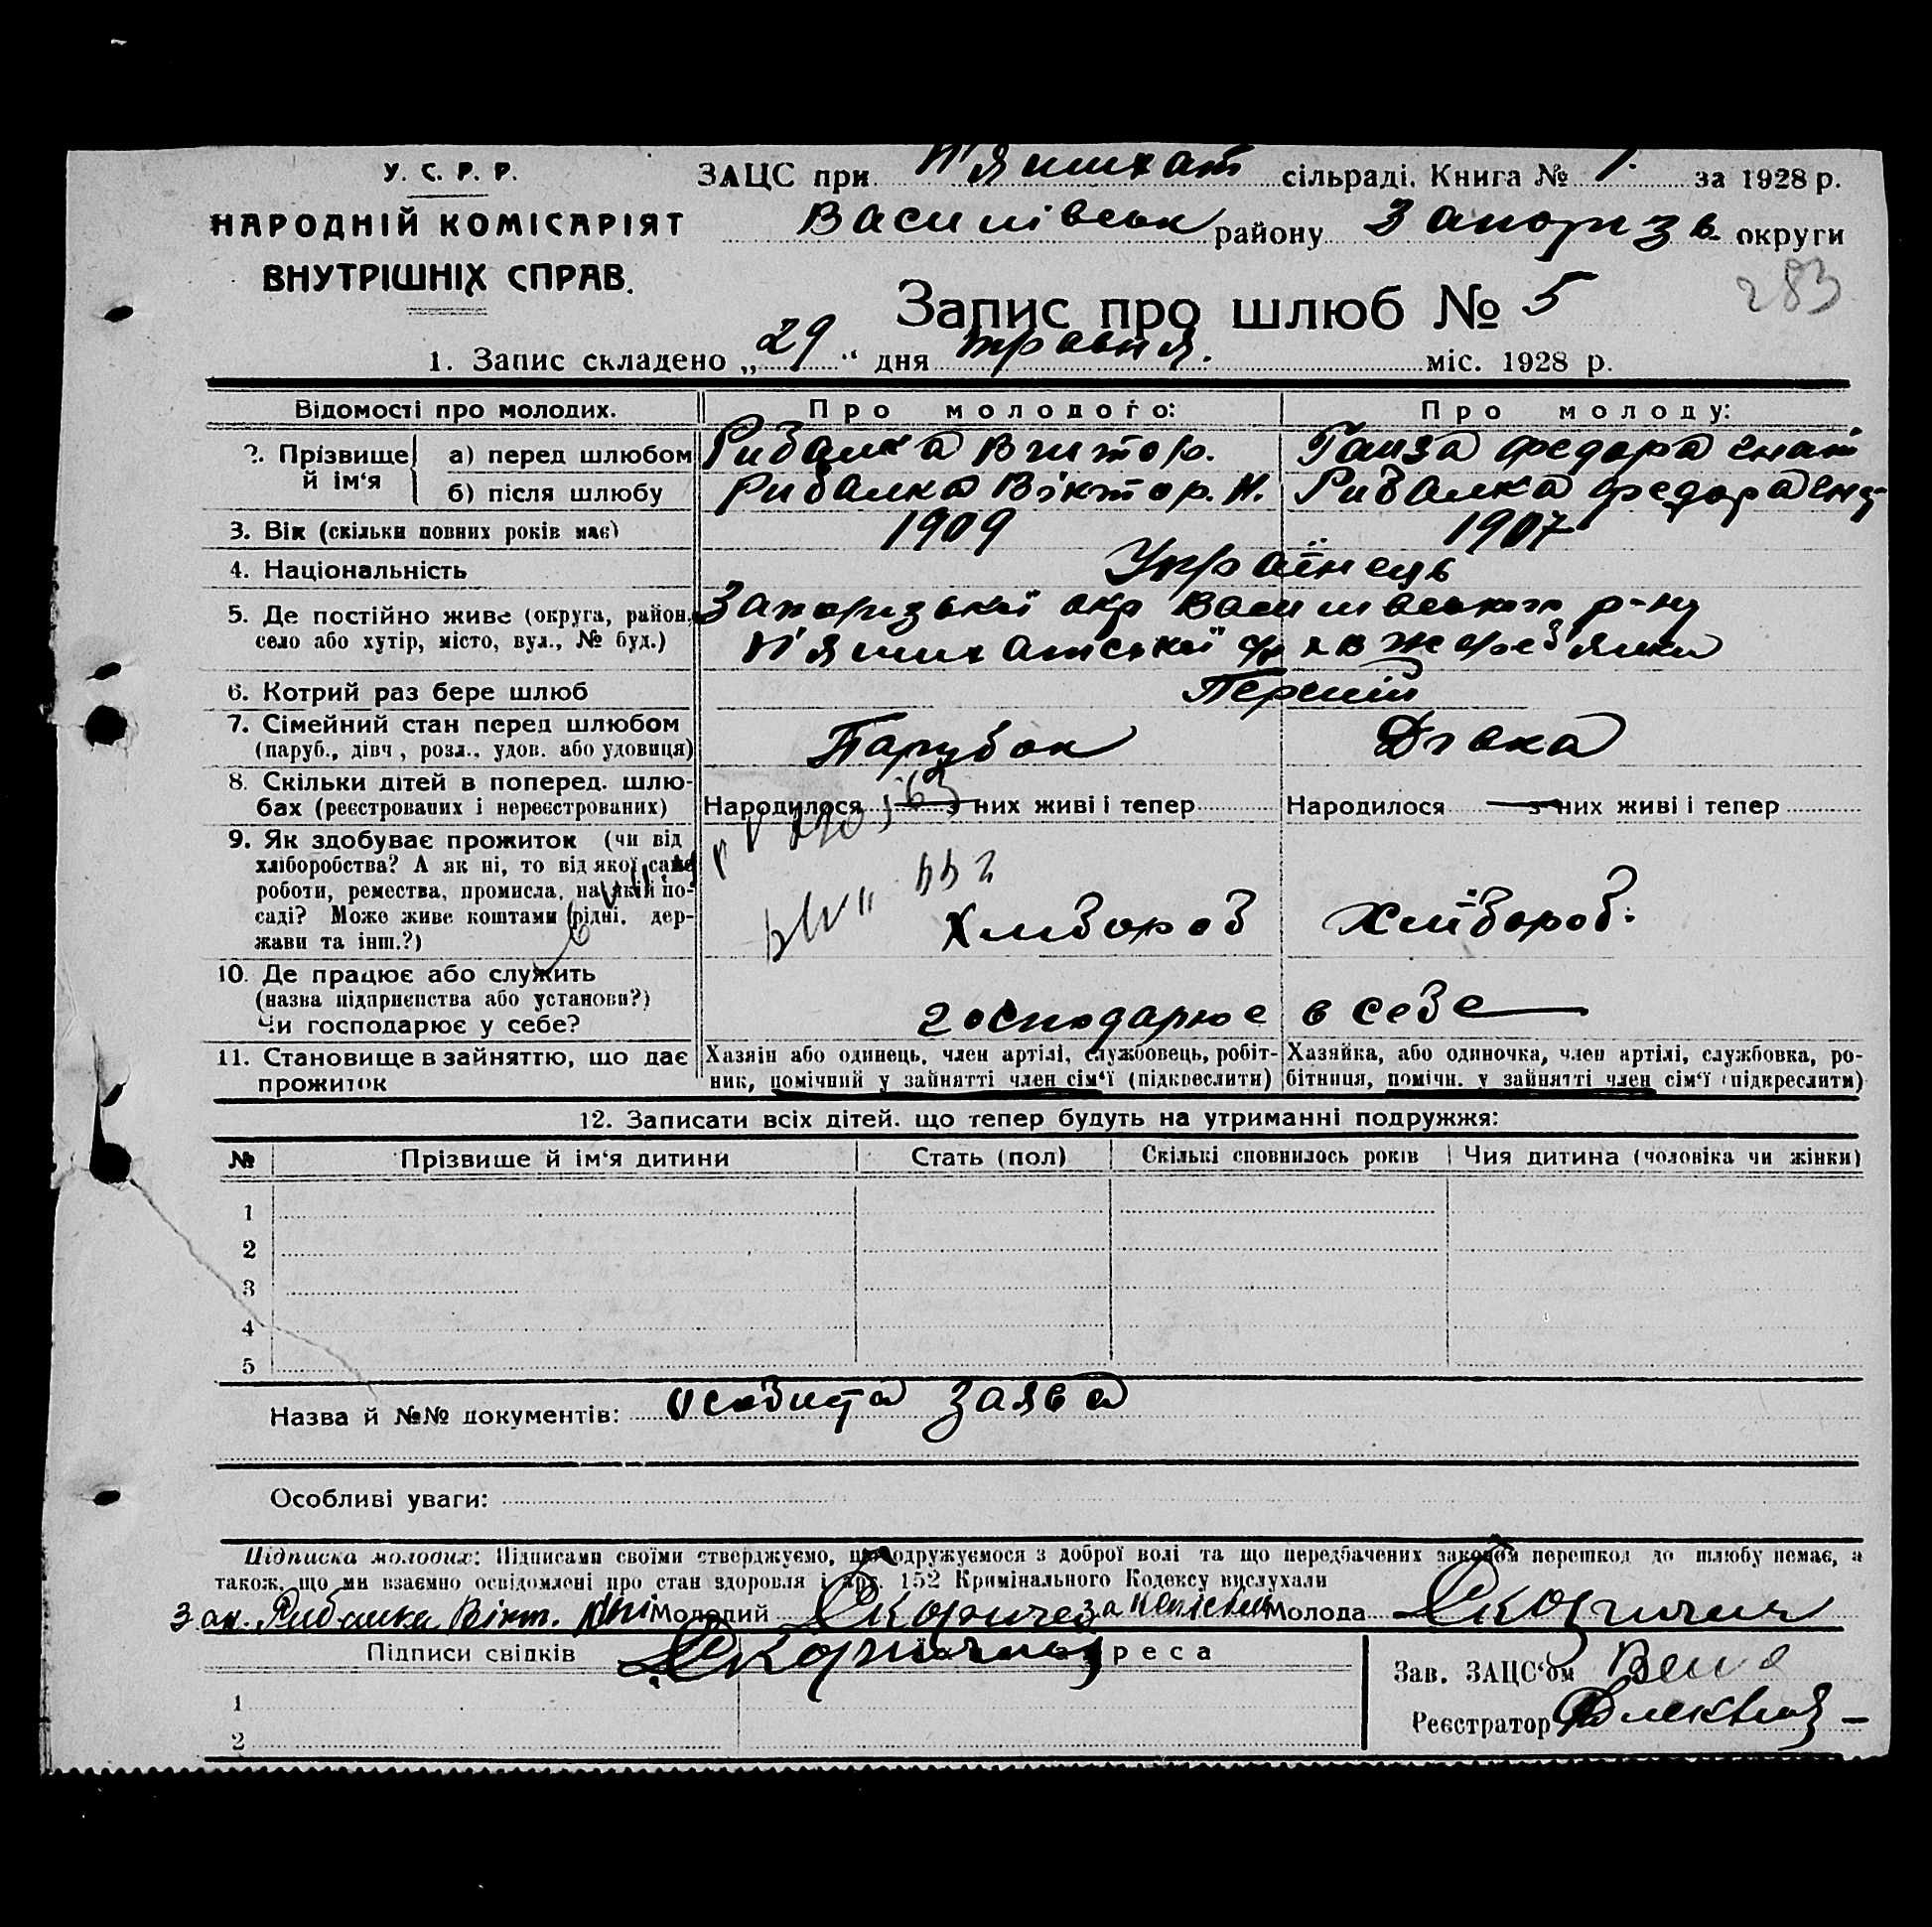 У. С. Р. Р.
НАРОДНІЙ КОМІСАРІЯТ
ВНУТРІШНІХ СПРАВ.
ЗАЦС при П'ятихат сільраді. Книга № 1. за 1928 р.
Василівськ району Запоріз. округи
283
Запис про шлюб № 5
1. Запис складено „29" дня травня. міс. 1928 р.
Відомості про молодих. Про молодого: Про молоду:
2. Прізвище й ім'я
а) перед шлюбом Рибалка Віктор. Ганза Федора Гнат
б) після шлюбу Рибалка Віктор. И. Рибалка Федора Гнат
3. Вік (скільки повних років має) 1909 1907
4. Національність Українець
5. Де постійно живе (округа, район, село або хутір, місто, вул., № буд.) Запорізької окр Василівського р-ну
П'ятихатської Жереб'янки
6. Котрий раз бере шлюб Перший
7. Сімейний стан перед шлюбом
(паруб., дівч., розл., удов. або удовиця) Парубок Дівка
8. Скільки дітей в поперед. шлюбах (реєстрованих і нереєстрованих) Народилося — з них живі і тепер Народилося — з них живі і тепер
9. Як здобуває прожиток (чи від
хліборобства? А як ні, то від якої саме
роботи, ремества, промисла, на якій по-
саді? Може живе коштами рідні, дер-
жави та інш.?) Хлібороб Хлібороб.
10. Де працює або служить
(назва підприєпства або установи?)
Чи господарює у себе? господарює в себе
11. Становище в зайняттю, що дає
прожиток
Хазяїн або одинець, член артілі, службовець, робіт-
ник, помічний у зайнятті член сім'ї (підкреслити)
Хазяйка, або одиночка, член артілі, службовка, ро-
бітниця, помічн. у зайнятті член сім'ї (підкреслити)
12. Записати всіх дітей, що тепер будуть на утриманні подружжя:
№ Прізвище й ім'я дитини Стать (пол) Скількі сповнилось років Чия дитина (чоловіка чи жінки)
1
2
3
4
5
Назва й №№ документів: Особиста заява
Особливі уваги:
Підписка молодих: Підписами своїми стверджуємо, що одружуємося з доброї волі та що передбачених законом перешкод до шлюбу немає, а
також, що ми взаємно освідомлені про стан здоровля і арт. 152 Кримінального Кодексу вислухали
Рибалка Вікт. Молодий Молода
Підписи свідків адреса
1
2
Зав. ЗАЦС'ом
Реєстратор